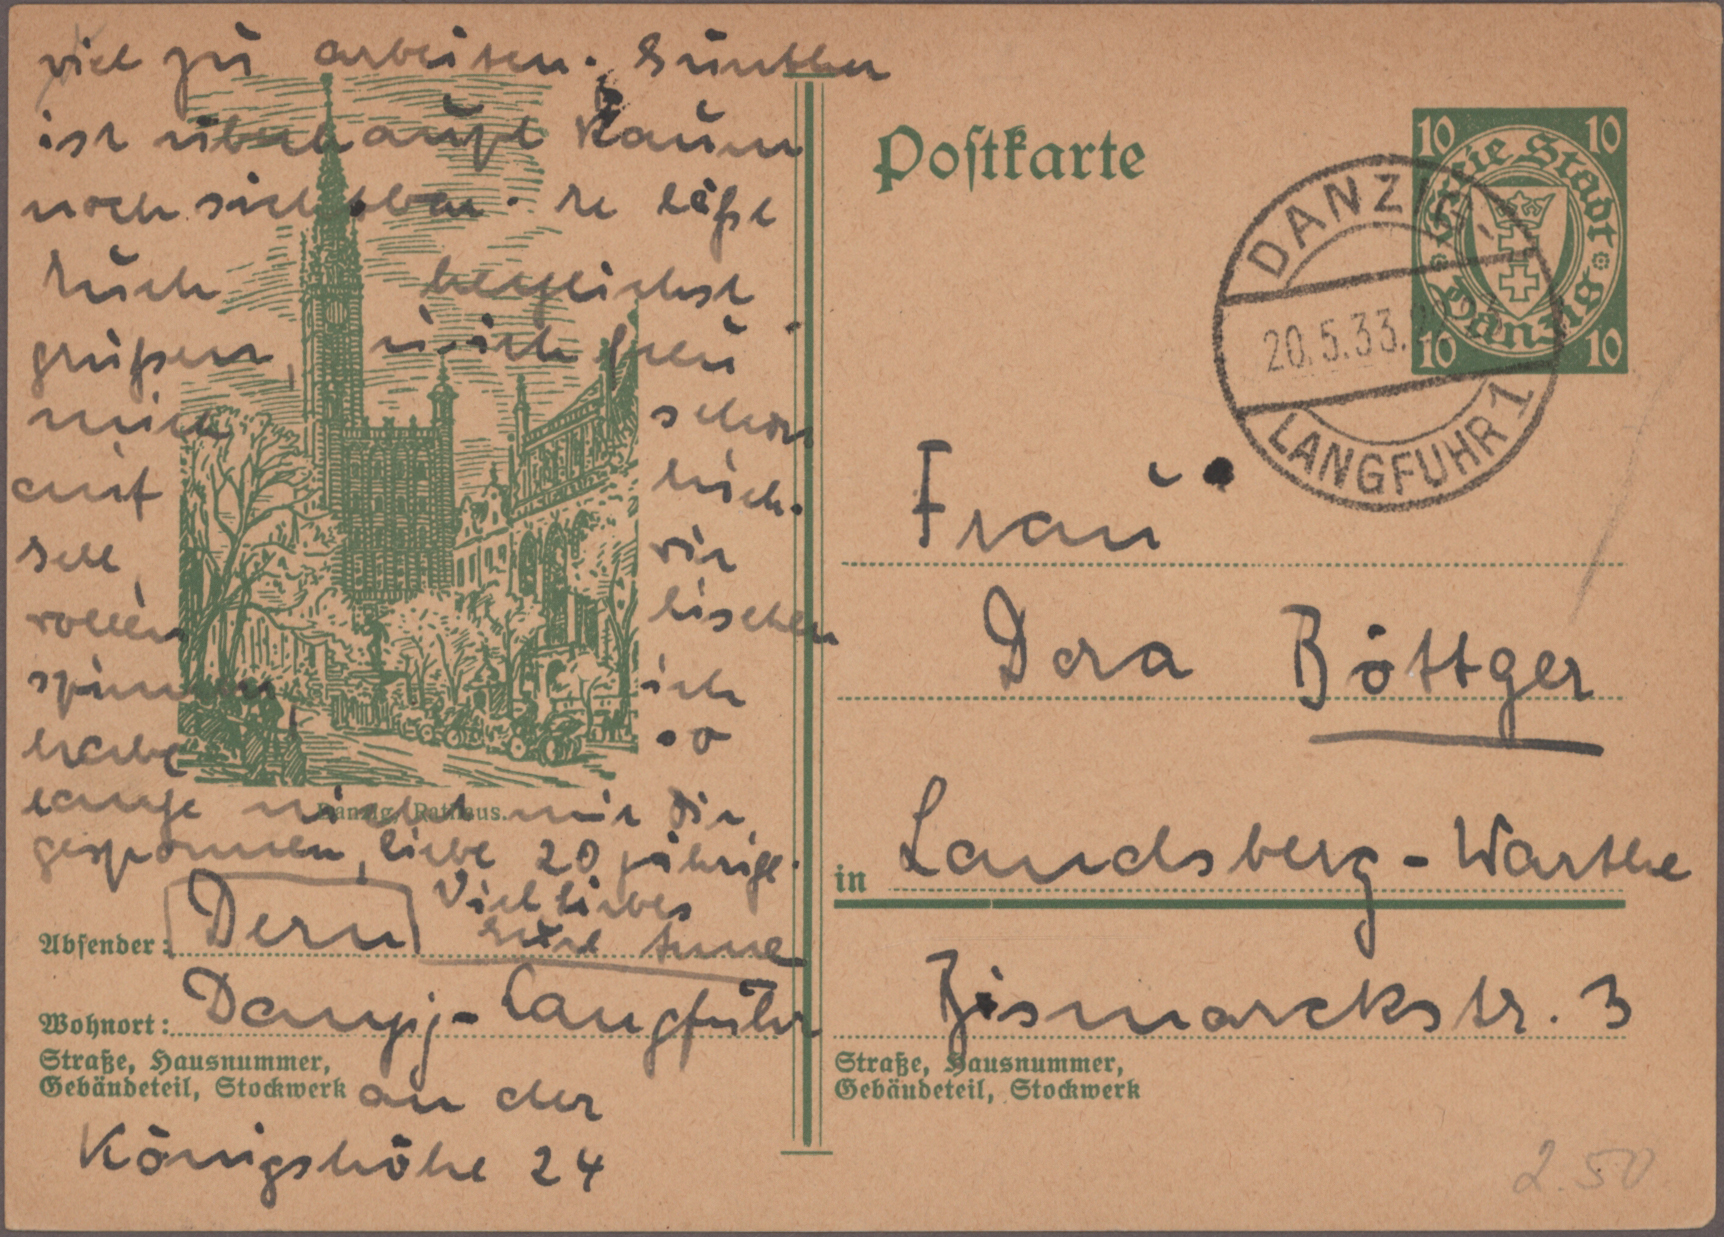 viel zu arbeiten. Günther
ist überhaupt kaum
noch sichtbar. Er läßt
Euch herzlichst
grüßen, u. ich freu
mich schon
auf Euch.
Dell, wir
wollen bischen
spinnen ich
habe so
lange nicht mit Dir
gesponnen, liebe 20 jährige.
Danzig, Rathaus.
Viel liebes
Eure Anne
Absender: Dern
Wohnort: Danzig-Langfuhr
Straße, Hausnummer,
Gebäudeteil, Stockwerk
an der
Königshöhe 24
Postkarte
10 10
Freie Stadt
Danzig
10 10
DANZIG
20.5.33.
LANGFUHR 1
Frau
Dora Böttger
in Landsberg-Warthe
Bismarckstr. 3
Straße, Hausnummer,
Gebäudeteil, Stockwerk
2 50